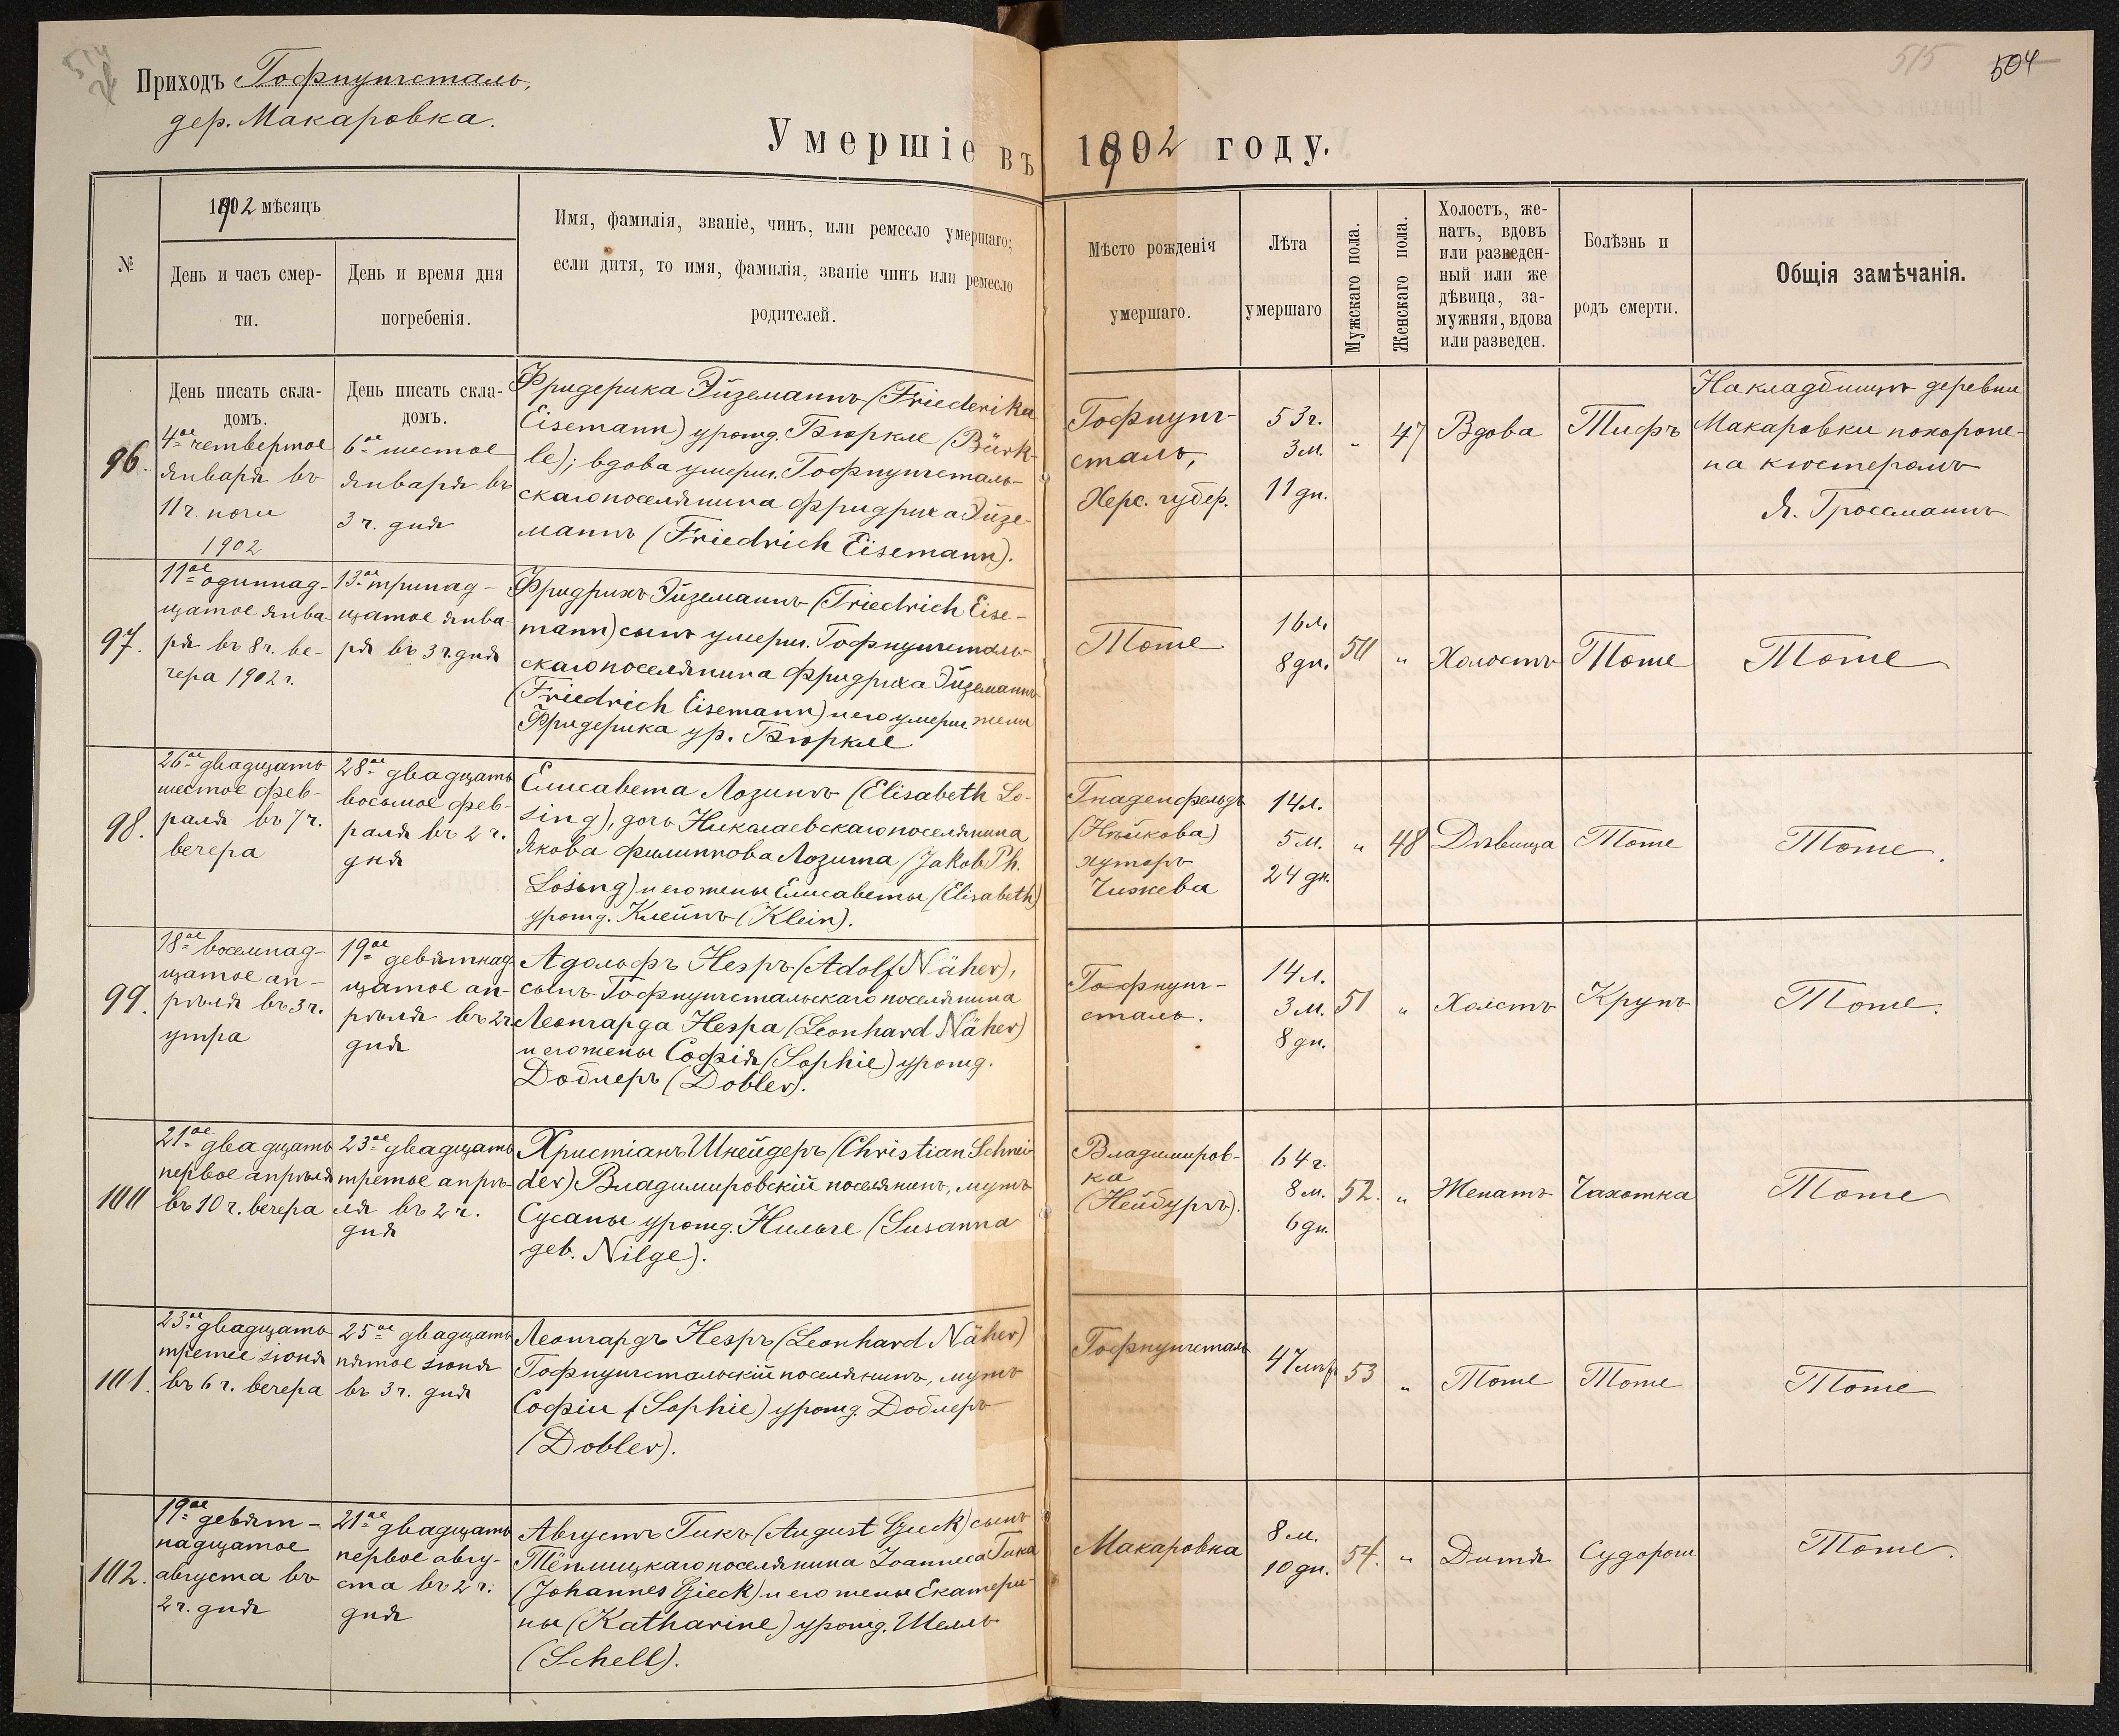 515
504
Приходъ Гофнунгсталь,
дер. Макаровка.
Умершіе въ 1902 году.
№
1902 мѣсяцъ
День и часъ смер-
ти.
День и время дня
погребенія.
Имя, фамилія, званіе, чинъ, или ремесло умершаго;
если дитя, то имя, фамилія, званіе чинъ или ремесло
родителей.
Мѣсто рожденія
умершаго.
Лѣта
умершаго
Мужскаго пола.
Женскаго пола.
Холостъ, же-
натъ, вдовъ
или разведен-
ный или же
дѣвица, за-
мужняя, вдова
или разведен.
Болѣзнь и
родъ смерти.
Общія замѣчанія.
День писать скла-
домъ.
День писать скла-
домъ.
96.
4ое четвертое
января въ
11 ч. ночи
1902
6ое шестое
января въ
3 ч. дня
Фридерика Эйземаннъ (Friederika
Eisemann) урожд. Бюркле (Bürk-
le); вдова умерш. Гофнунгсталь-
скаго поселянина Фридриха Эйзе-
маннъ (Friedrich Eisemann).
Гофнунг-
сталь,
Херс. губер.
53 г.
3 м.
11 дн.
"
47
Вдова
Тифъ
На кладбищѣ деревни
Макаровки похороне-
на кюстеромъ
Я. Гроссманнъ
97.
11ое одиннад-
цатое янва-
ря въ 8 ч. ве-
чера 1902 г.
13ое тринад-
цатое янва-
ря въ 3 ч. дня
Фридрихъ Эйземаннъ (Friedrich Eise-
mann) сынъ умерш. Гофнунгсталь-
скаго поселянина Фридриха Эйземаннъ
(Friedrich Eisemann) и его умерш. жены
Фридерика ур. Бюркле
Тоже
16 л.
8 дн.
50
"
Холостъ
Тоже
Тоже
98.
26ое двадцать
шестое фев-
раля въ 7 ч.
вечера
28ое двадцать
восьмое фев-
раля въ 2 ч.
дня
Елисавета Лозингъ (Elisabeth Lo-
sing), дочь Николаевскаго поселянина
Якова Филиппова Лозинга (Jakob Ph.
Losing) и его жены Елисаветы (Elisabeth)
урожд. Клейнъ (Klein).
Гнаденфельдъ
(Нѣйкова)
хуторъ
Чижева
14 л.
5 м.
24 дн.
"
48
Дѣвица
Тоже
Тоже.
99.
18ое восемнад-
цатое ап-
рѣля въ 3 ч.
утра
19ое девятнад
цатое ап-
рѣля въ 2 ч.
дня
Адольфъ Неэръ (Adolf Näher),
сынъ Гофнунгстальскаго поселянина
Леонгарда Неэра (Leonhard Näher)
и его жены Софія (Sophie) урожд.
Доблеръ (Dobler).
Гофнунг-
сталь.
14 л.
3 м.
8 дн.
51
"
Холстъ
Крупъ
Тоже.
100
21ое двадцать
первое апрѣля
въ 10 ч. вечера
23ое двадцать
третое апрѣ-
ля въ 2 ч.
дня
Христіанъ Шнейдеръ (Christian Schnei-
der) Владимировскій поселянинъ, мужъ
Сусаны урожд. Нильге (Susanna
geb. Nilge).
Владимиров-
ка
(Нейбургъ).
64 г.
8 м.
6 дн.
52.
"
Женатъ
Чахотка
Тоже
101.
23ое двадцать
третее іюня
въ 6 ч. вечера
25ое двадцать
пятое іюня
въ 3 ч. дня
Леонгардъ Неэръ (Leonhard Näher)
Гофнунгстальскій поселянинъ, мужъ
Софіи (Sophie) урожд. Доблеръ
(Dobler).
Гофнунгсталь
47 лѣтъ
53
"
Тоже
Тоже
Тоже
102.
19ое девят-
надцатое
августа въ
2 ч. дня
21ое двадцать
первое авгу-
ста въ 2 ч.
дня
Августъ Гикъ (August Gieck) сынъ
Тёплицкаго поселянина Іоаннеса Гика
(Johannes Gieck) и его жены Екатери-
ны (Katharine) урожд. Шелль
(Schell).
Макаровка
8 м.
10 дн.
54.
"
Дитя
Судороги
Тоже.